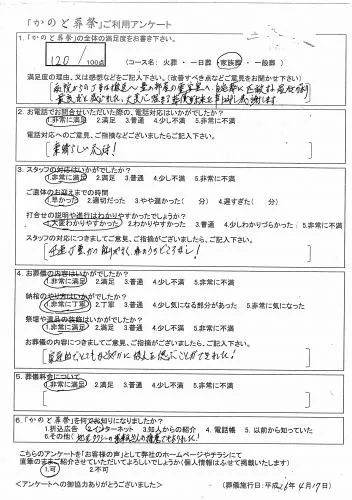 「かのと葬祭」ご利用アンケート
1.「かのと葬祭」の全体の満足度をお書き下さい。
120/100点 (コース名: 火葬 ・一日葬 ・家族葬 ・一般葬 )
満足度の理由、又は感想などをご記入下さい。(改善すべき点などご意見をお聞かせ下さい)
2.お電話でお問合せいただいた際の、電話対応はいかがでしたか?
1.非常に満足 2.満足 3.普通 4.少し不満 5.非常に不満
電話対応へのご意見、ご指摘などございましたらご記入下さい。
素晴らしい応対!
3.スタッフの対応はいかがでしたか?
1.非常に満足 2.満足 3.普通 4.少し不満 5.非常に不満
ご遺体のお迎えまでの時間
1.早かった 2.適切だった 3.やや遅かった( 分) 4.遅すぎた( 分)
打合せの説明や進行はわかりやすかったでしょうか?
1.大変わかりやすかった 2.わかりやすかった 3.普通 4.少しわかりづらかった 5.非常に不満
スタッフの対応につきましてご意見、ご指摘がございましたら、ご記入下さい。
4.お葬儀の内容はいかがでしたか?
1.非常に満足 2.満足 3.普通 4.少し不満 5.非常に不満
納棺のやり方はいかがでしたか?
1.非常に丁寧 2.丁寧 3.普通 4.少し気になる部分があった 5.非常に気になった
祭壇や遺品の装飾はいかがでしたか?
1.非常に満足 2.満足 3.普通 4.少し不満 5.非常に不満
お葬儀の内容につきましてご意見、ご指摘がございましたらご記入下さい。
家庭的でとてもおごそかに故人を偲ぶことができました!
5.葬儀料金について
1.非常に満足 2.満足 3.普通 4.少し不満 5.非常に不満
6.「かのと葬祭」を何でお知りになりましたか?
1.折込広告 2.インターネット 3.知人からの紹介 4.電話帳 5.以前から知っていた
6.その他(
こちらのアンケートを「お客様の声」として弊社のホームページやチラシにて
直筆のままご紹介させていただいてよろしいでしょうか(個人情報はふせて掲載いたします)
1.可 2.不可
<アンケートへの御協力ありがとうございました> (葬儀施行日:平成 年4月17日)